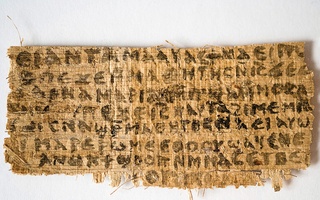 ⲉⲓ ⲁⲛ ⲧⲁⲙⲁⲁⲩ ⲁⲥϯ ⲛⲁⲉⲓ
ⲡⲉϫⲉ ⲙⲙⲁⲑⲏⲧⲏⲥ ⲛⲓⲥ ϫⲉ
ⲁⲣⲛⲁ ⲙⲁⲣⲓⲁⲙ ⲙⲡϣⲁ ⲙⲙⲟⲥ ⲁ
ⲡⲉϫⲉ ⲓⲥ ⲛⲁⲩ ⲧⲁϩⲓⲙⲉ ⲙⲛ
ⲥⲛⲁϣⲣⲙⲁⲑⲏⲧⲏⲥ ⲛⲁⲉⲓ ⲁⲩⲱ
ⲓ ⲙⲁⲣⲉⲣⲱⲙⲉ ⲉⲑⲟⲟⲩ ϣⲁϥⲉ ⲛⲉ
ⲁⲛⲟⲕ ϯϣⲟⲟⲡ ⲛⲙⲙⲁⲥ ⲉⲧⲃⲉ